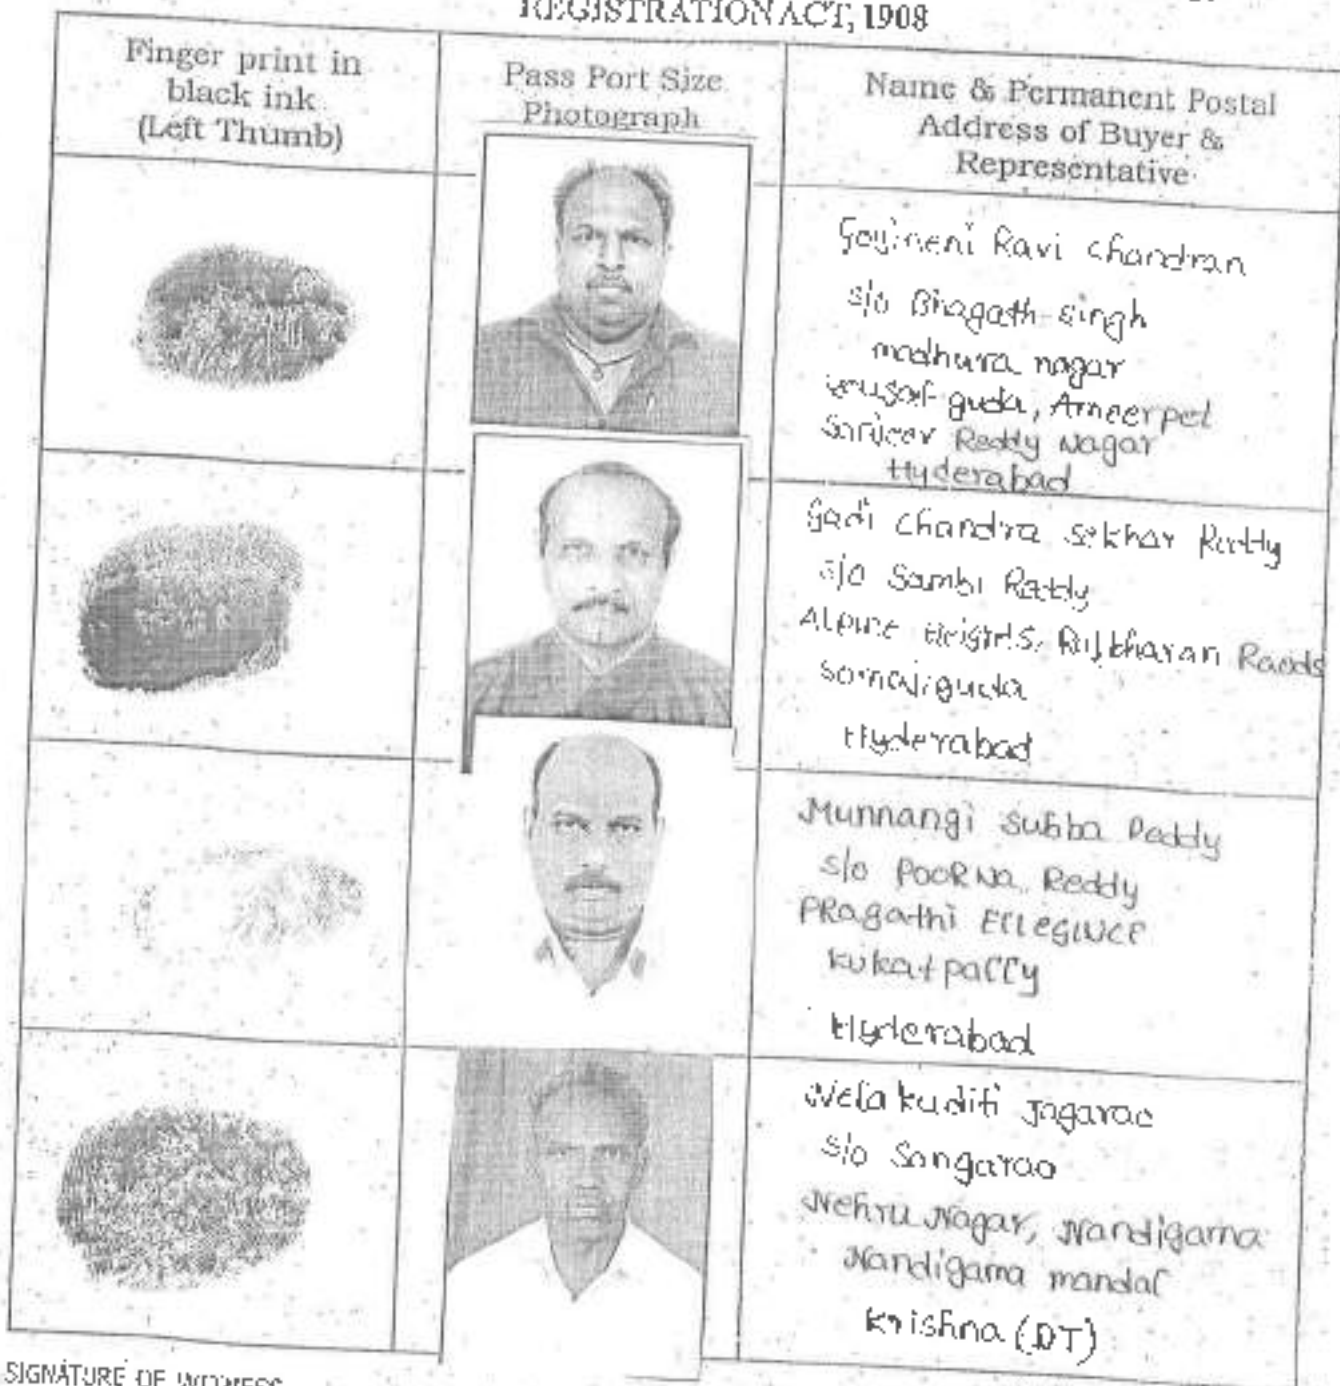 REGISTRATION ACT, 1908
Finger print in
black ink
(Left Thumb)
Pass Port Size
Photograph
Name & Permanent Postal
Address of Buyer &
Representative
Ravi chandran
s/o Bhagath singh
madhura nagar
guda, Ameerpet
Reddy Nagar
Hyderabad
Gadi chandra sekhar Reddy
s/o Sambi Reddy
Raods
somajiguda
Hyderabad
Munnangi Subba Reddy
s/o POORNA Reddy
PRagathi
kukatpally
Hyderabad
Jagarao
s/o Sangarao
Nehru Nagar, Nandigama
Nandigama mandal
krishna (DT)
SIGNATURE OF WITNESS